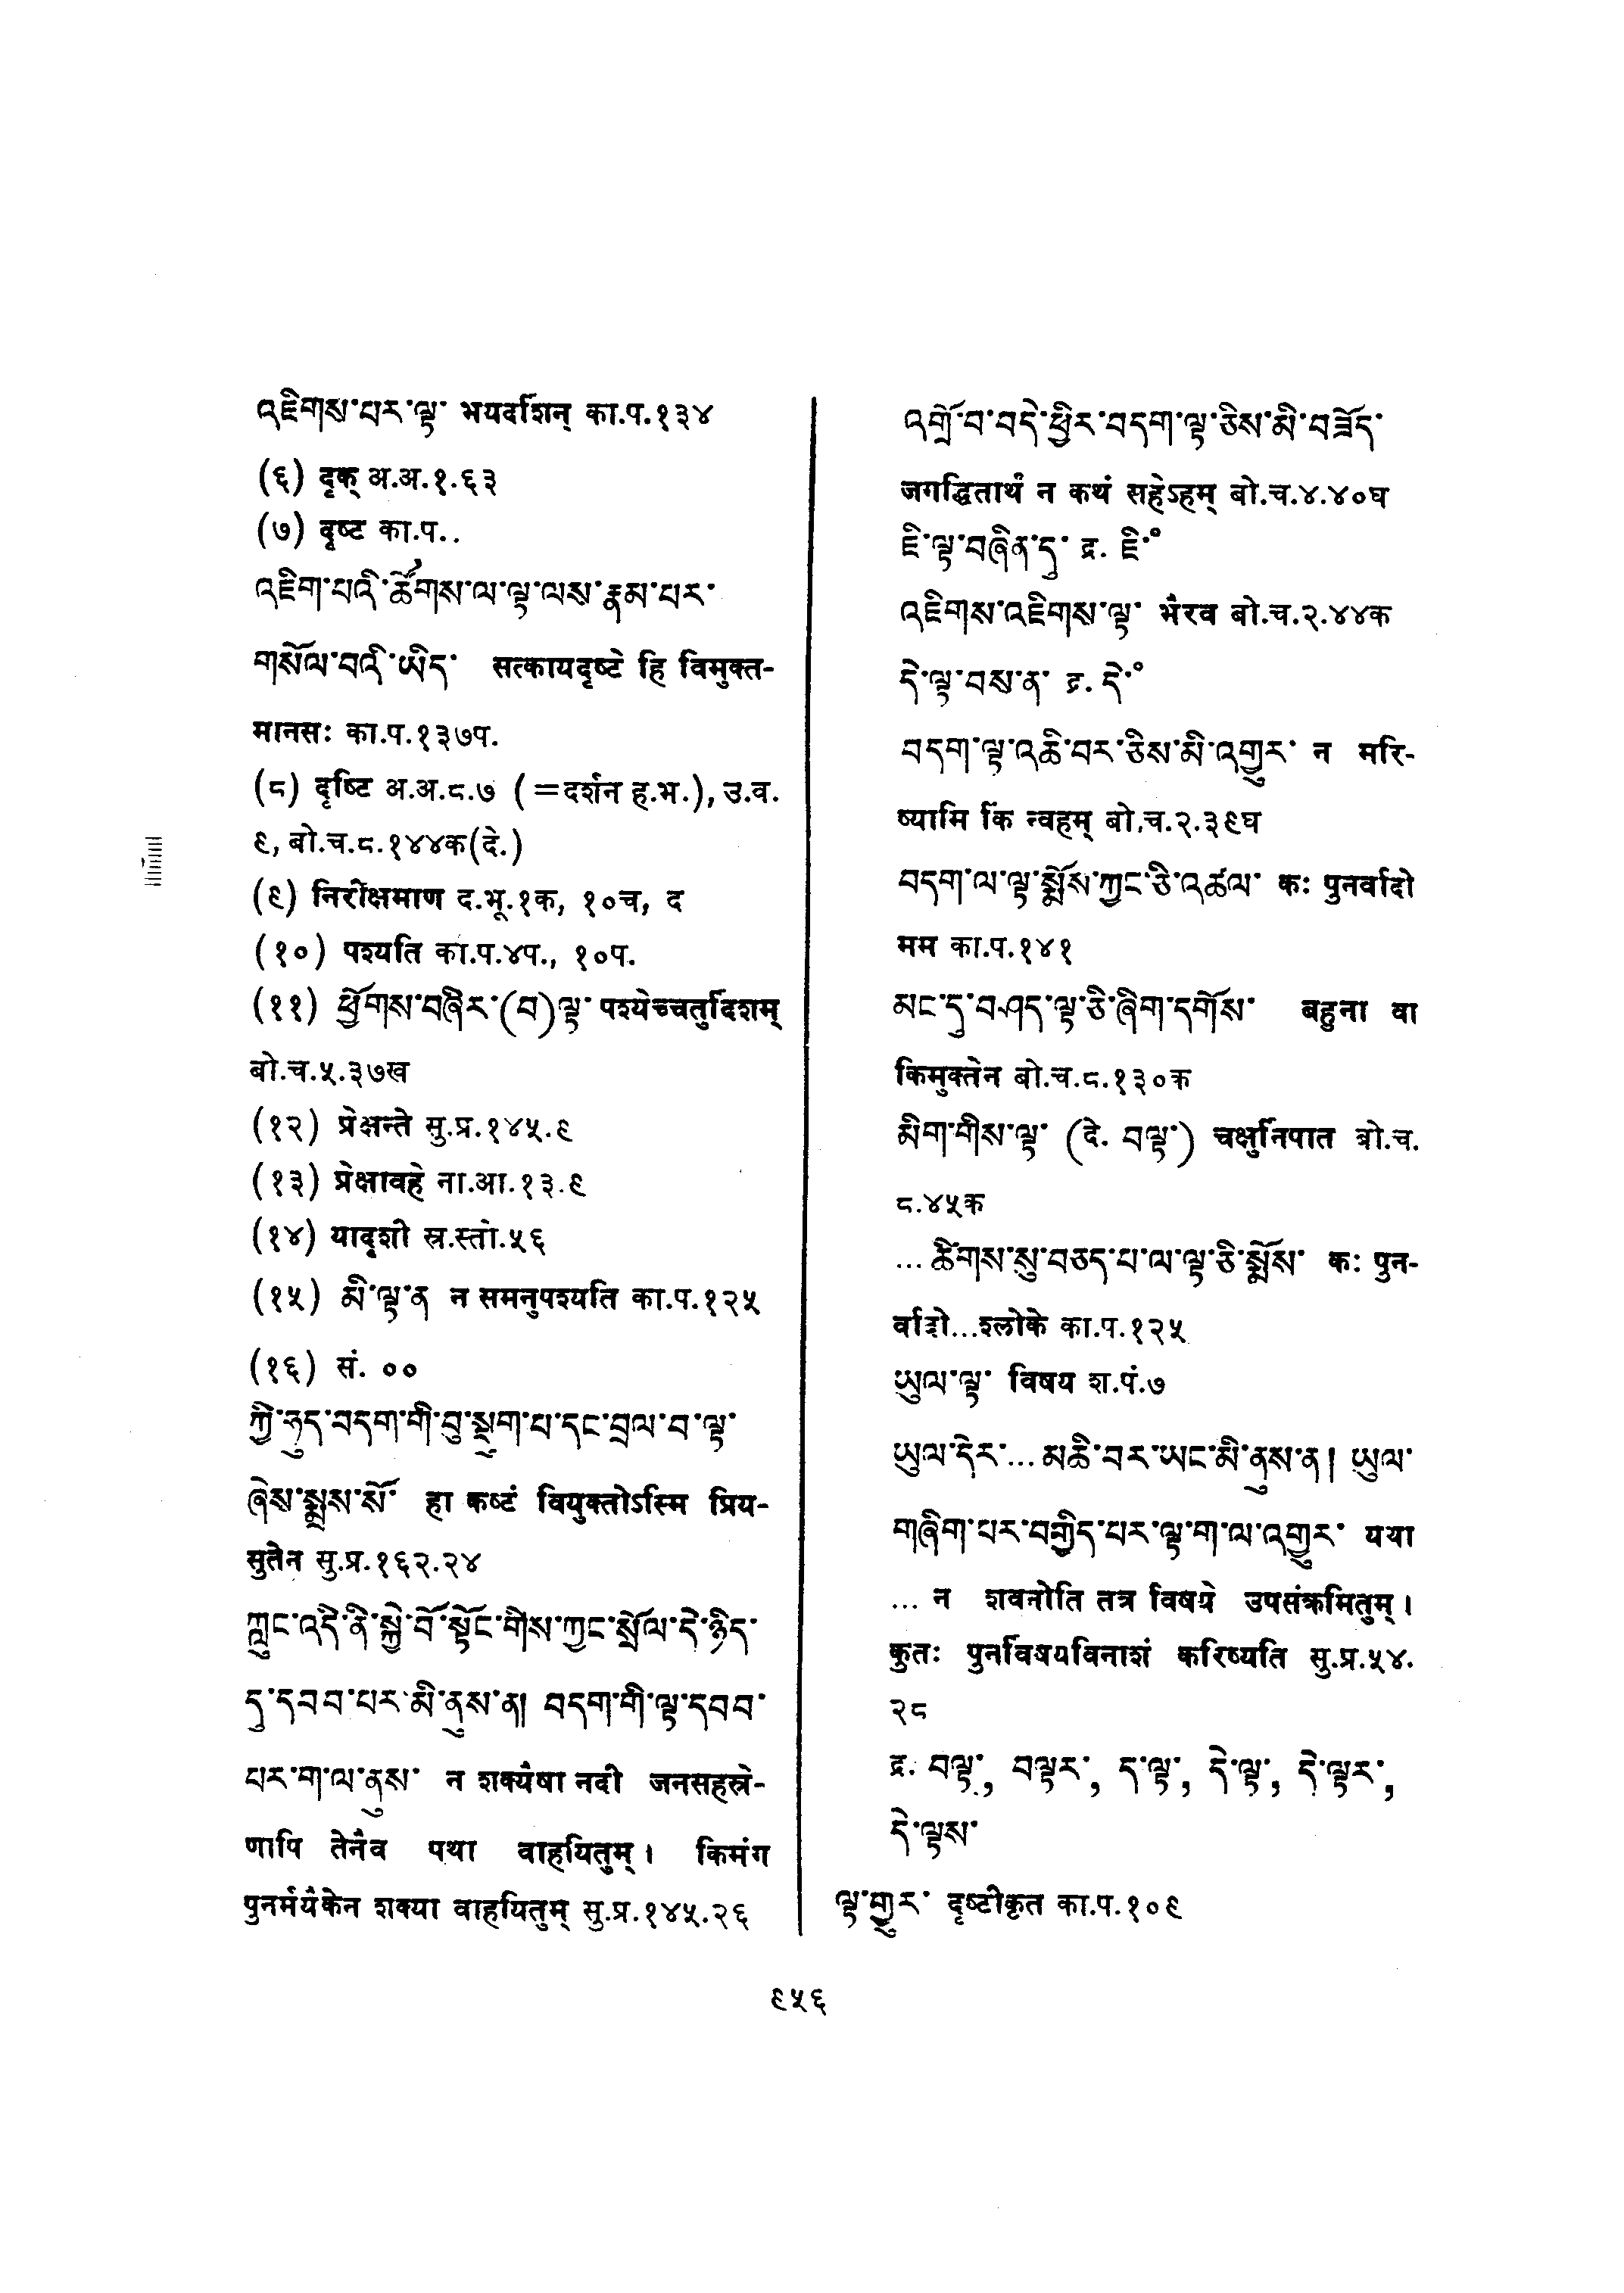 འཇིགས་པར་ལྟ་ भयदर्शिन् का.प.१३४
(६) दृक् अ.अ.१.६३
(७) दृष्ट का.प..
འཇིག་པའི་ཚོགས་ལ་ལྟ་ལས་རྣམ་པར་
གསོལ་བའི་ཡིད་ सत्कायदृष्टे हि विमुक्त-
मानसः का.प.१३७प.
(८) दृष्टि अ.अ.८.७ (=दर्शन ह.भ.), उ.व.
९, बो.च.८.१४४क(दे.)
(९) निरीक्षमाण द.भू.१क, १०च, द
(१०) पश्यति का.प.४प., १०प.
(११) ཕྱོགས་བཞིར་(བ)ལྟ་ पश्येच्चतुर्दिशम्
बो.च.५.३७ख
(१२) प्रेक्षन्ते सु.प्र.१४५.९
(१३) प्रेक्षावहे ना.आ.१३.९
(१४) यादृशी स्र.स्तो.५६
(१५) མི་ལྟ་ན न समनुपश्यति का.प.१२५
(१६) सं. ००
ཀྱི་ཧུད་བདག་གི་བུ་སྡུག་པ་དང་བྲལ་བ་ལྟ་
ཞེས་སྨྲས་སོ་ हा कष्टं वियुक्तोऽस्मि प्रिय-
सुतेन सु.प्र.१६२.२४
ཀླུང་འདི་ནི་སྐྱེ་བོ་སྟོང་གིས་ཀྱང་སྲོལ་དེ་ཉིད་
དུ་དབབ་པར་མི་ནུས་ན། བདག་གི་ལྟ་དབབ་
པར་ག་ལ་ནུས་ न शक्यैषा नदी जनसहस्रे-
णापि तेनैव पथा वाहयितुम्। किमंग
पुनर्मयैकेन शक्या वाहयितुम् सु.प्र.१४५.२६
འགྲོ་བ་བདེ་ཕྱིར་བདག་ལྟ་ཅིས་མི་བཟོད་
जगद्धितार्थं न कथं सहेऽहम् बो.च.४.४०घ
ཇི་ལྟ་བཞིན་དུ་ द्र. ཇི་°
འཇིགས་འཇིགས་ལྟ་ भैरव बो.च.२.४४क
དེ་ལྟ་བས་ན་ द्र. དེ་°
བདག་ལྟ་འཆི་བར་ཅིས་མི་འགྱུར་ न मरि-
ष्यामि किं न्वहम् बो.च.२.३९घ
བདག་ལ་ལྟ་སྨོས་ཀྱང་ཅི་འཚལ་ कः पुनर्वादो
मम का.प.१४१
མང་དུ་བཤད་ལྟ་ཅི་ཞིག་དགོས་ बहुना वा
किमुक्तेन बो.च.८.१३०क
མིག་གིས་ལྟ་ (दे. བལྟ་) चक्षुर्निपात बो.च.
८.४५क
... ཚིགས་སུ་བཅད་པ་ལ་ལྟ་ཅི་སྨོས་ कः पुन-
र्वादो...श्लोके का.प.१२५
ཡུལ་ལྟ་ विषय श.पं.७
ཡུལ་དེར་... མཆི་བར་ཡང་མི་ནུས་ན། ཡུལ་
གཞིག་པར་བགྱིད་པར་ལྟ་ག་ལ་འགྱུར་ यया
... न शक्नोति तत्र विषये उपसंक्रमितुम्।
कुतः पुनर्विषयविनाशं करिष्यति सु.प्र.५४.
२८
द्र. བལྟ་, བལྟར་, ད་ལྟ་, དེ་ལྟ་, དེ་ལྟར་,
དེ་ལྟས་
ལྟ་གྱུར་ दृष्टीकृत का.प.१०९
९५६